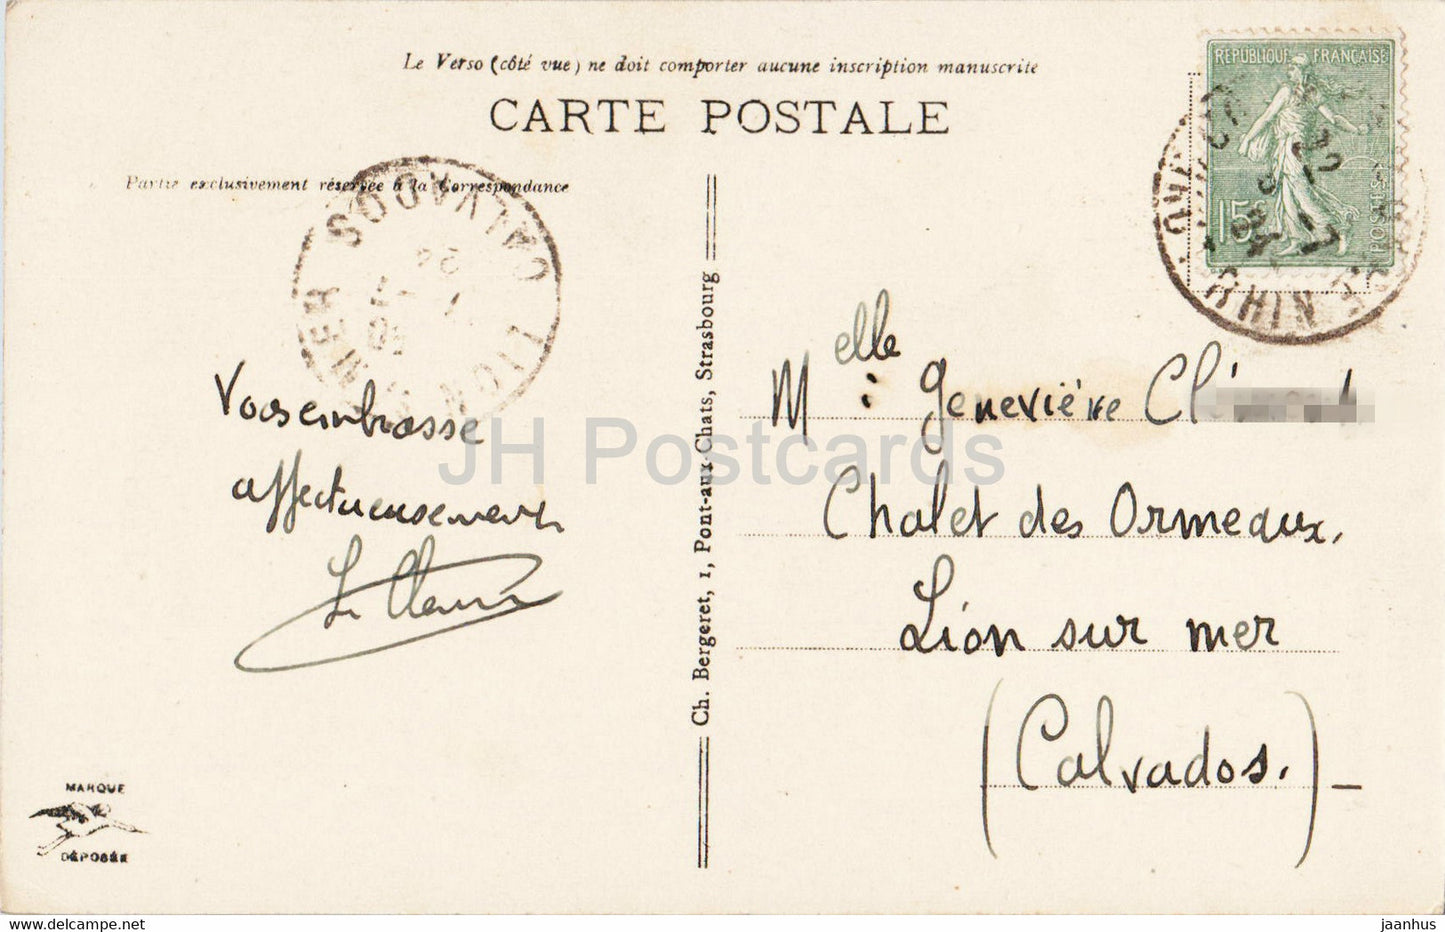 Le Verso (côté vue) ne doit comporter aucune inscription manuscrite
CARTE POSTALE
Partie exclusivement réservée à la Correspondance
REPUBLIQUE FRANÇAISE
15c
POSTES
LION S MER
CALVADOS
24
Vous embrasse
affectueusement
Melle Geneviève Clé
Chalet des Ormeaux,
Lion sur mer
(Calvados.)
Ch. Bergeret, 1, Pont-aux-Chats, Strasbourg
MARQUE
DÉPOSÉE
JH Postcards
www.delcampe.net
jaanhus